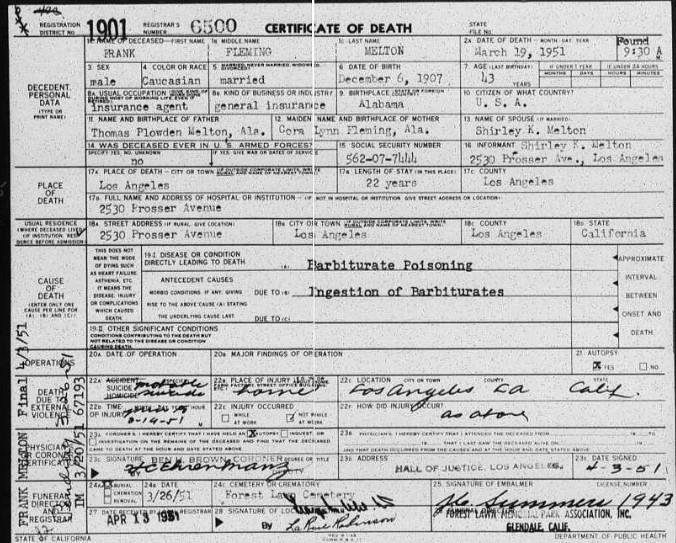 REGISTRATION DISTRICT NO. 1901 REGISTRAR'S NUMBER 6500 CERTIFICATE OF DEATH STATE FILE NO.
1a NAME OF DECEASED—FIRST NAME 1b MIDDLE NAME 1c LAST NAME 2a DATE OF DEATH—MONTH DAY YEAR Found
FRANK FLEMING MELTON March 19, 1951 9:30 A
DECEDENT PERSONAL DATA (TYPE OR PRINT NAME)
3 SEX 4 COLOR OR RACE 5 6 DATE OF BIRTH 7 AGE IF UNDER 1 YEAR IF UNDER 24 HOURS
male Caucasian married December 6, 1907 43 YEARS MONTHS DAYS HOURS MINUTES
8a USUAL OCCUPATION 8b KIND OF BUSINESS OR INDUSTRY 9 BIRTHPLACE 10 CITIZEN OF WHAT COUNTRY?
insurance agent general insurance Alabama U. S. A.
11 NAME AND BIRTHPLACE OF FATHER 12 MAIDEN NAME AND BIRTHPLACE OF MOTHER 13 NAME OF SPOUSE (IF MARRIED)
Thomas Plowden Melton, Ala. Cora Lynn Fleming, Ala. Shirley K. Melton
14 WAS DECEASED EVER IN U. S. ARMED FORCES? 15 SOCIAL SECURITY NUMBER 16 INFORMANT Shirley K. Melton
SPECIFY YES, NO, UNKNOWN IF YES, GIVE WAR OR DATES OF SERVICE
no 562-07-7444 2530 Prosser Ave., Los Angeles
PLACE OF DEATH
17a PLACE OF DEATH—CITY OR TOWN LENGTH OF STAY (IN THIS PLACE) 17c COUNTY
Los Angeles 22 years Los Angeles
FULL NAME AND ADDRESS OF HOSPITAL OR INSTITUTION
2530 Prosser Avenue
USUAL RESIDENCE
18a STREET ADDRESS CITY OR TOWN 18c COUNTY STATE
2530 Prosser Avenue Los Angeles Los Angeles California
CAUSE OF DEATH (ENTER ONLY ONE CAUSE PER LINE FOR (A), (B) AND (C))
THIS DOES NOT MEAN THE MODE OF DYING SUCH AS HEART FAILURE, ASTHENIA, ETC. IT MEANS THE DISEASE, INJURY OR COMPLICATIONS WHICH CAUSED DEATH.
19-I DISEASE OR CONDITION DIRECTLY LEADING TO DEATH (A) Barbiturate Poisoning
ANTECEDENT CAUSES
MORBID CONDITIONS, IF ANY, GIVING RISE TO THE ABOVE CAUSE (A) STATING THE UNDERLYING CAUSE LAST
DUE TO (B) Ingestion of Barbiturates
DUE TO (C)
APPROXIMATE INTERVAL BETWEEN ONSET AND DEATH
19-II OTHER SIGNIFICANT CONDITIONS
CONDITIONS CONTRIBUTING TO THE DEATH BUT NOT RELATED TO THE DISEASE OR CONDITION CAUSING DEATH.
OPERATIONS 20a DATE OF OPERATION MAJOR FINDINGS OF OPERATION 21. AUTOPSY
X YES NO
DEATH DUE TO EXTERNAL VIOLENCE
22a ACCIDENT SUICIDE HOMICIDE PLACE OF INJURY 22c LOCATION CITY OR TOWN COUNTY STATE
home Los Angeles Calif.
TIME OF INJURY INJURY OCCURRED HOW DID INJURY OCCUR?
WHILE AT WORK NOT WHILE AT WORK as above
PHYSICIAN'S OR CORONER'S CERTIFICATION
AUTOPSY
SIGNATURE BEN H. BROWN, CORONER DEGREE OR TITLE ADDRESS DATE SIGNED
HALL OF JUSTICE, LOS ANGELES 4-3-51
FUNERAL DIRECTOR AND REGISTRAR
BURIAL CREMATION REMOVAL 3/26/51
24c CEMETERY OR CREMATORY
Forest Lawn Cemetery
25 SIGNATURE OF EMBALMER LICENSE NUMBER
1943
FOREST LAWN MEMORIAL PARK ASSOCIATION, INC.
GLENDALE, CALIF.
27 DATE RECEIVED BY LOCAL REGISTRAR
APR 13 1951
28 SIGNATURE OF LOCAL REGISTRAR
By
STATE OF CALIFORNIA DEPARTMENT OF PUBLIC HEALTH
FRANK MELTON Final 4/3/51
IM 3/20/51 67193